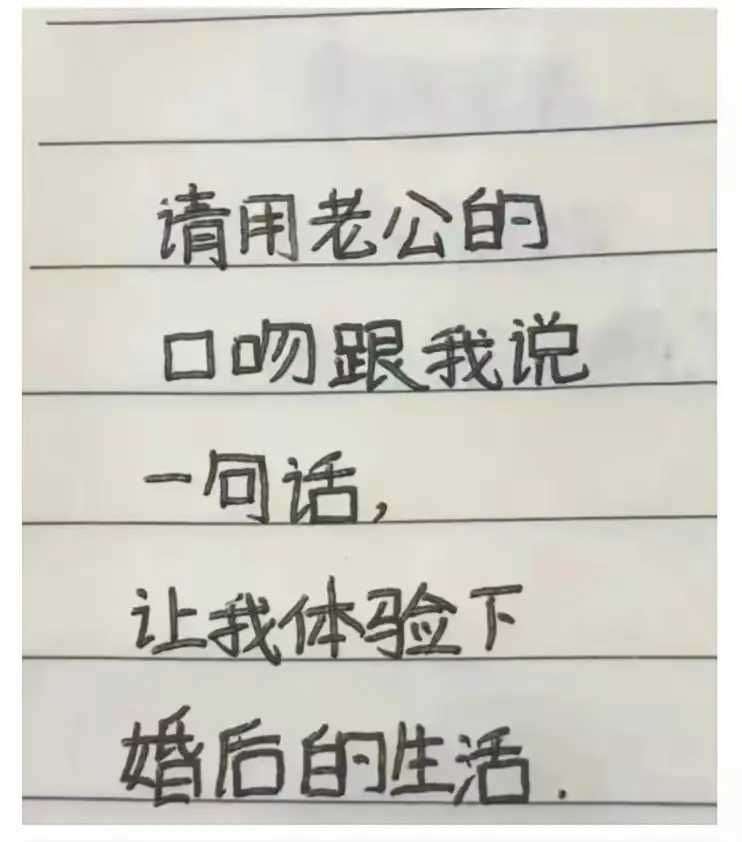 请用老公的
口吻跟我说
一句话,
让我体验下
婚后的生活.